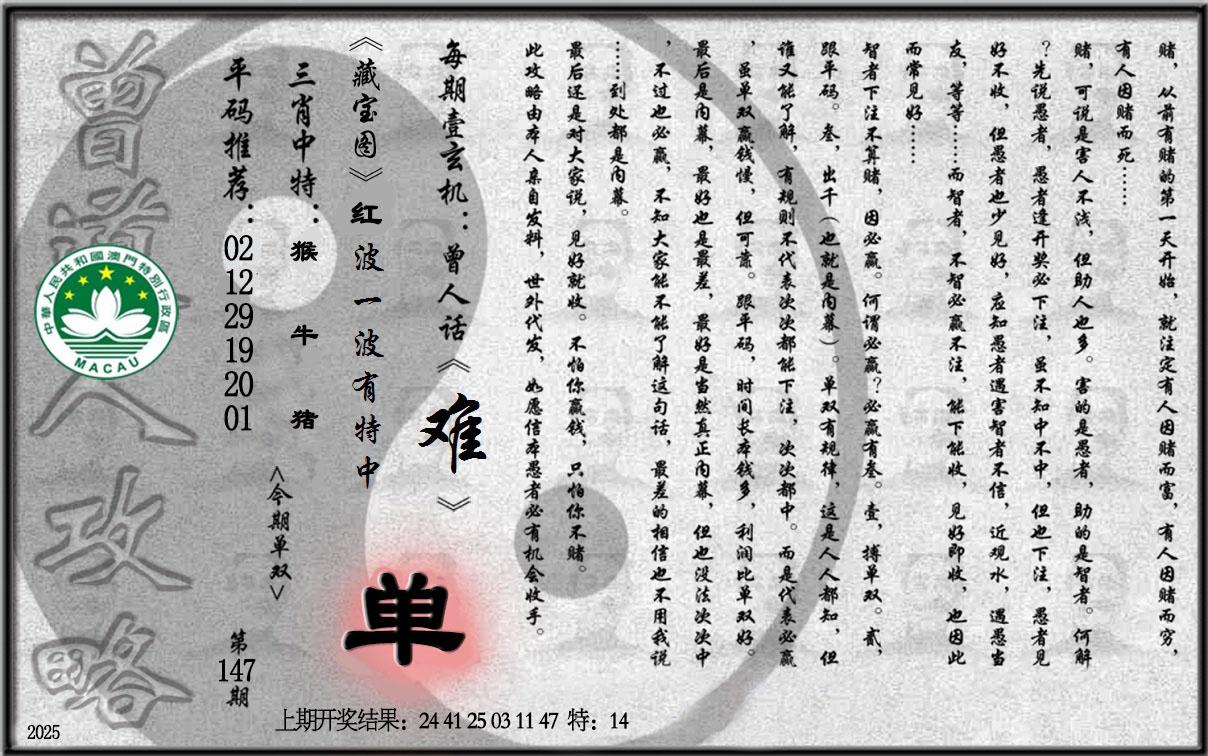 赌，从前有赌的第一天开始，就注定有人因赌而富，有人因赌而穷，
有人因赌而死……
赌，可说是害人不浅，但助人也多。害的是愚者，助的是智者。何解
？先说愚者，愚者逢开奖必下注，虽不知中不中，但也下注，愚者见
好不收，但愚者也少见好，应知愚者遇害智者不信，近观水，遇愚当
友，等等……而智者，不智必赢不注，能下能收，见好即收，也因此
而常见好……
智者下注不算赌，因必赢。何谓必赢？必赢有叁。壹，搏单双。贰，
跟平码。叁，出千（也就是内幕）。单双有规律，这是人人都知，但
谁又能了解，有规则不代表次次都能下注，次次都中。而是代表必赢
，虽单双赢钱慢，但可靠。跟平码，时间长本钱多，利润比单双好。
最后是内幕，最好也是最差，最好是当然真正内幕，但也没法次次中
，不过也必赢，不知大家能不能了解这句话，最差的相信也不用我说
……到处都是内幕。
最后还是对大家说，见好就收。不怕你赢钱，只怕你不赌。
此攻略由本人亲自发料，世外代发，如愿信本愚者必有机会收手。
每期壹玄机：曾人话《难》
《藏宝图》红波一波有特中
三肖中特：猴牛猪
平码推荐：02 12 29 19 20 01
<今期单双>
单
第147期
曾道人攻略
中華人民共和國澳門特別行政區
MACAU
上期开奖结果：24 41 25 03 11 47 特：14
2025